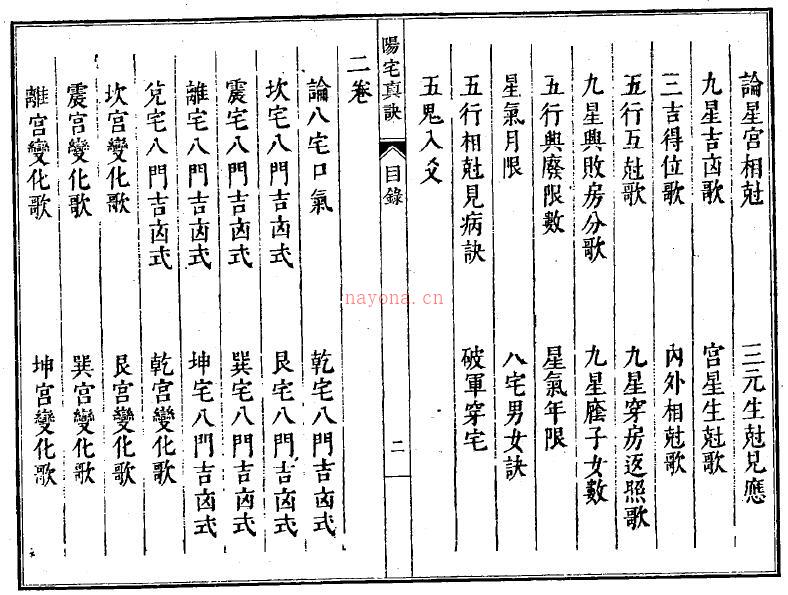 論星宫相尅 三元生尅見應
九星吉㐫歌 宫星生尅歌
三吉得位歌 内外相尅歌
五行互尅歌 九星穿房返照歌
九星興敗房分歌 九星廕子女數
五行興廢限數 星氣年限
星氣月限 八宅男女訣
五行相尅見病訣 破軍穿宅
五鬼入爻
陽宅真訣 目錄 二
二卷
論八宅口氣 乾宅八門吉㐫式
坎宅八門吉㐫式 艮宅八門吉㐫式
震宅八門吉㐫式 巽宅八門吉㐫式
離宅八門吉㐫式 坤宅八門吉㐫式
兊宅八門吉㐫式 乾宫變化歌
坎宫變化歌 艮宫變化歌
震宫變化歌 巽宫變化歌
離宫變化歌 坤宫變化歌
nayona.cn